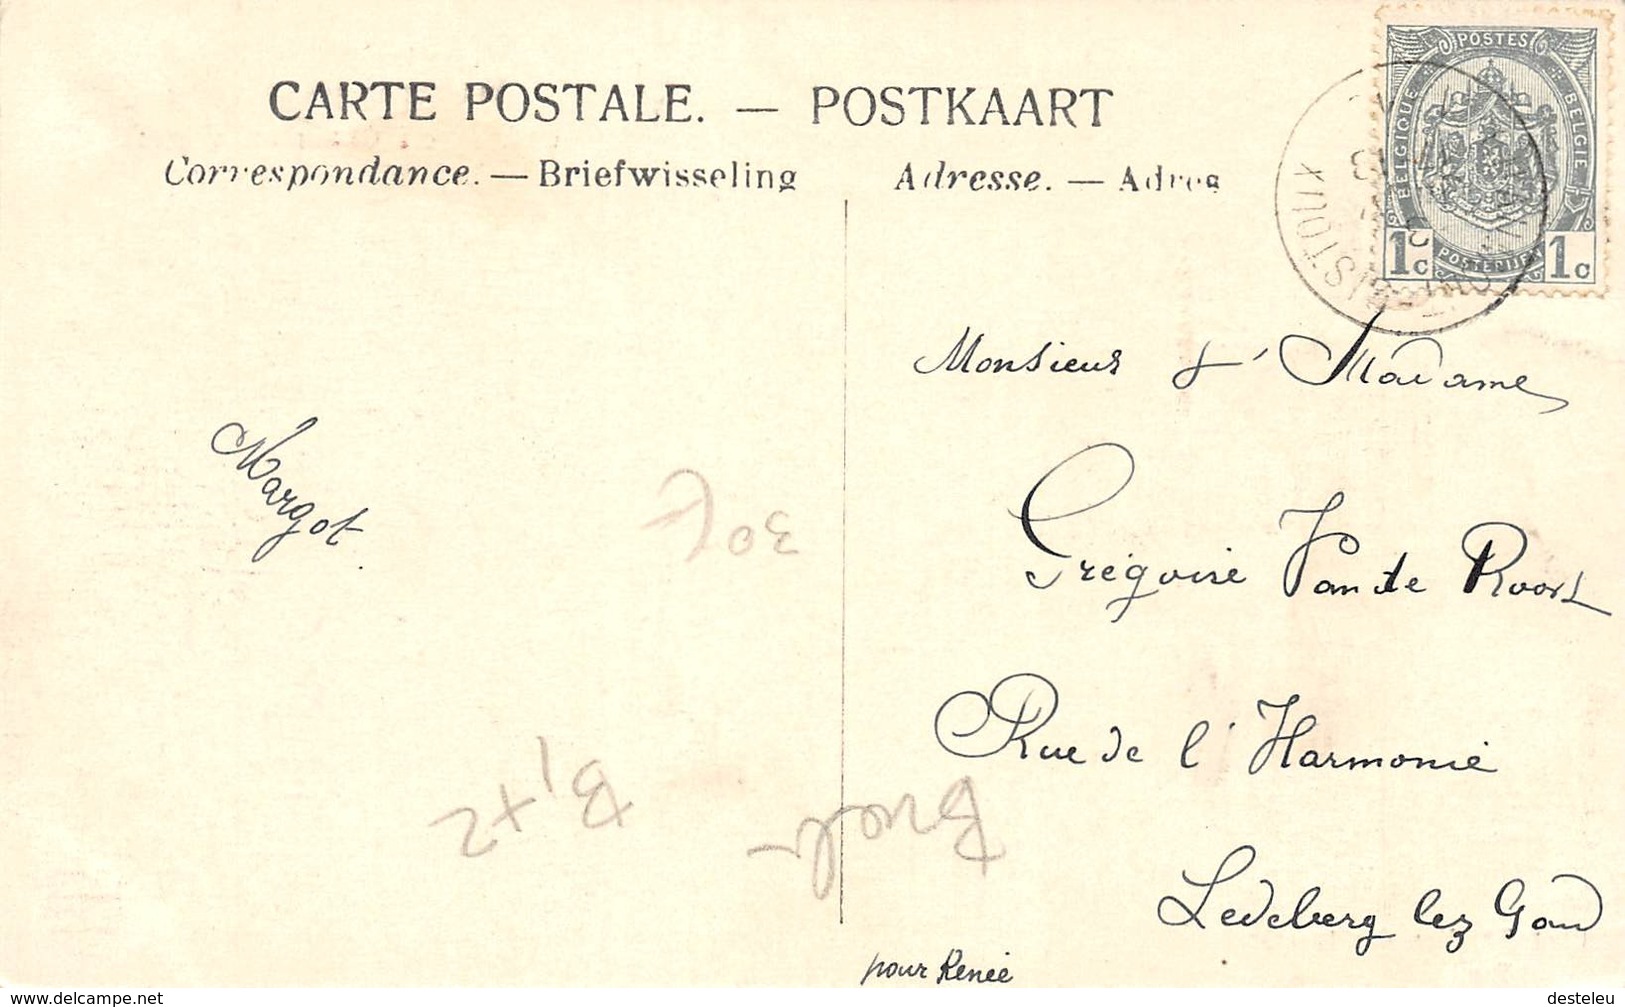 CARTE POSTALE. — POSTKAART
Correspondance. — Briefwisseling
Adresse. — Adres
POSTES
BELGIQUE
BELGIE
POSTERIJEN
1c 1c
Margot.
Monsieur & Madame
Grégoire Van de Roort
Rue de l'Harmonie
Ledeberg lez Gand
pour Renée
30f
B! +2
www.delcampe.net
desteleu